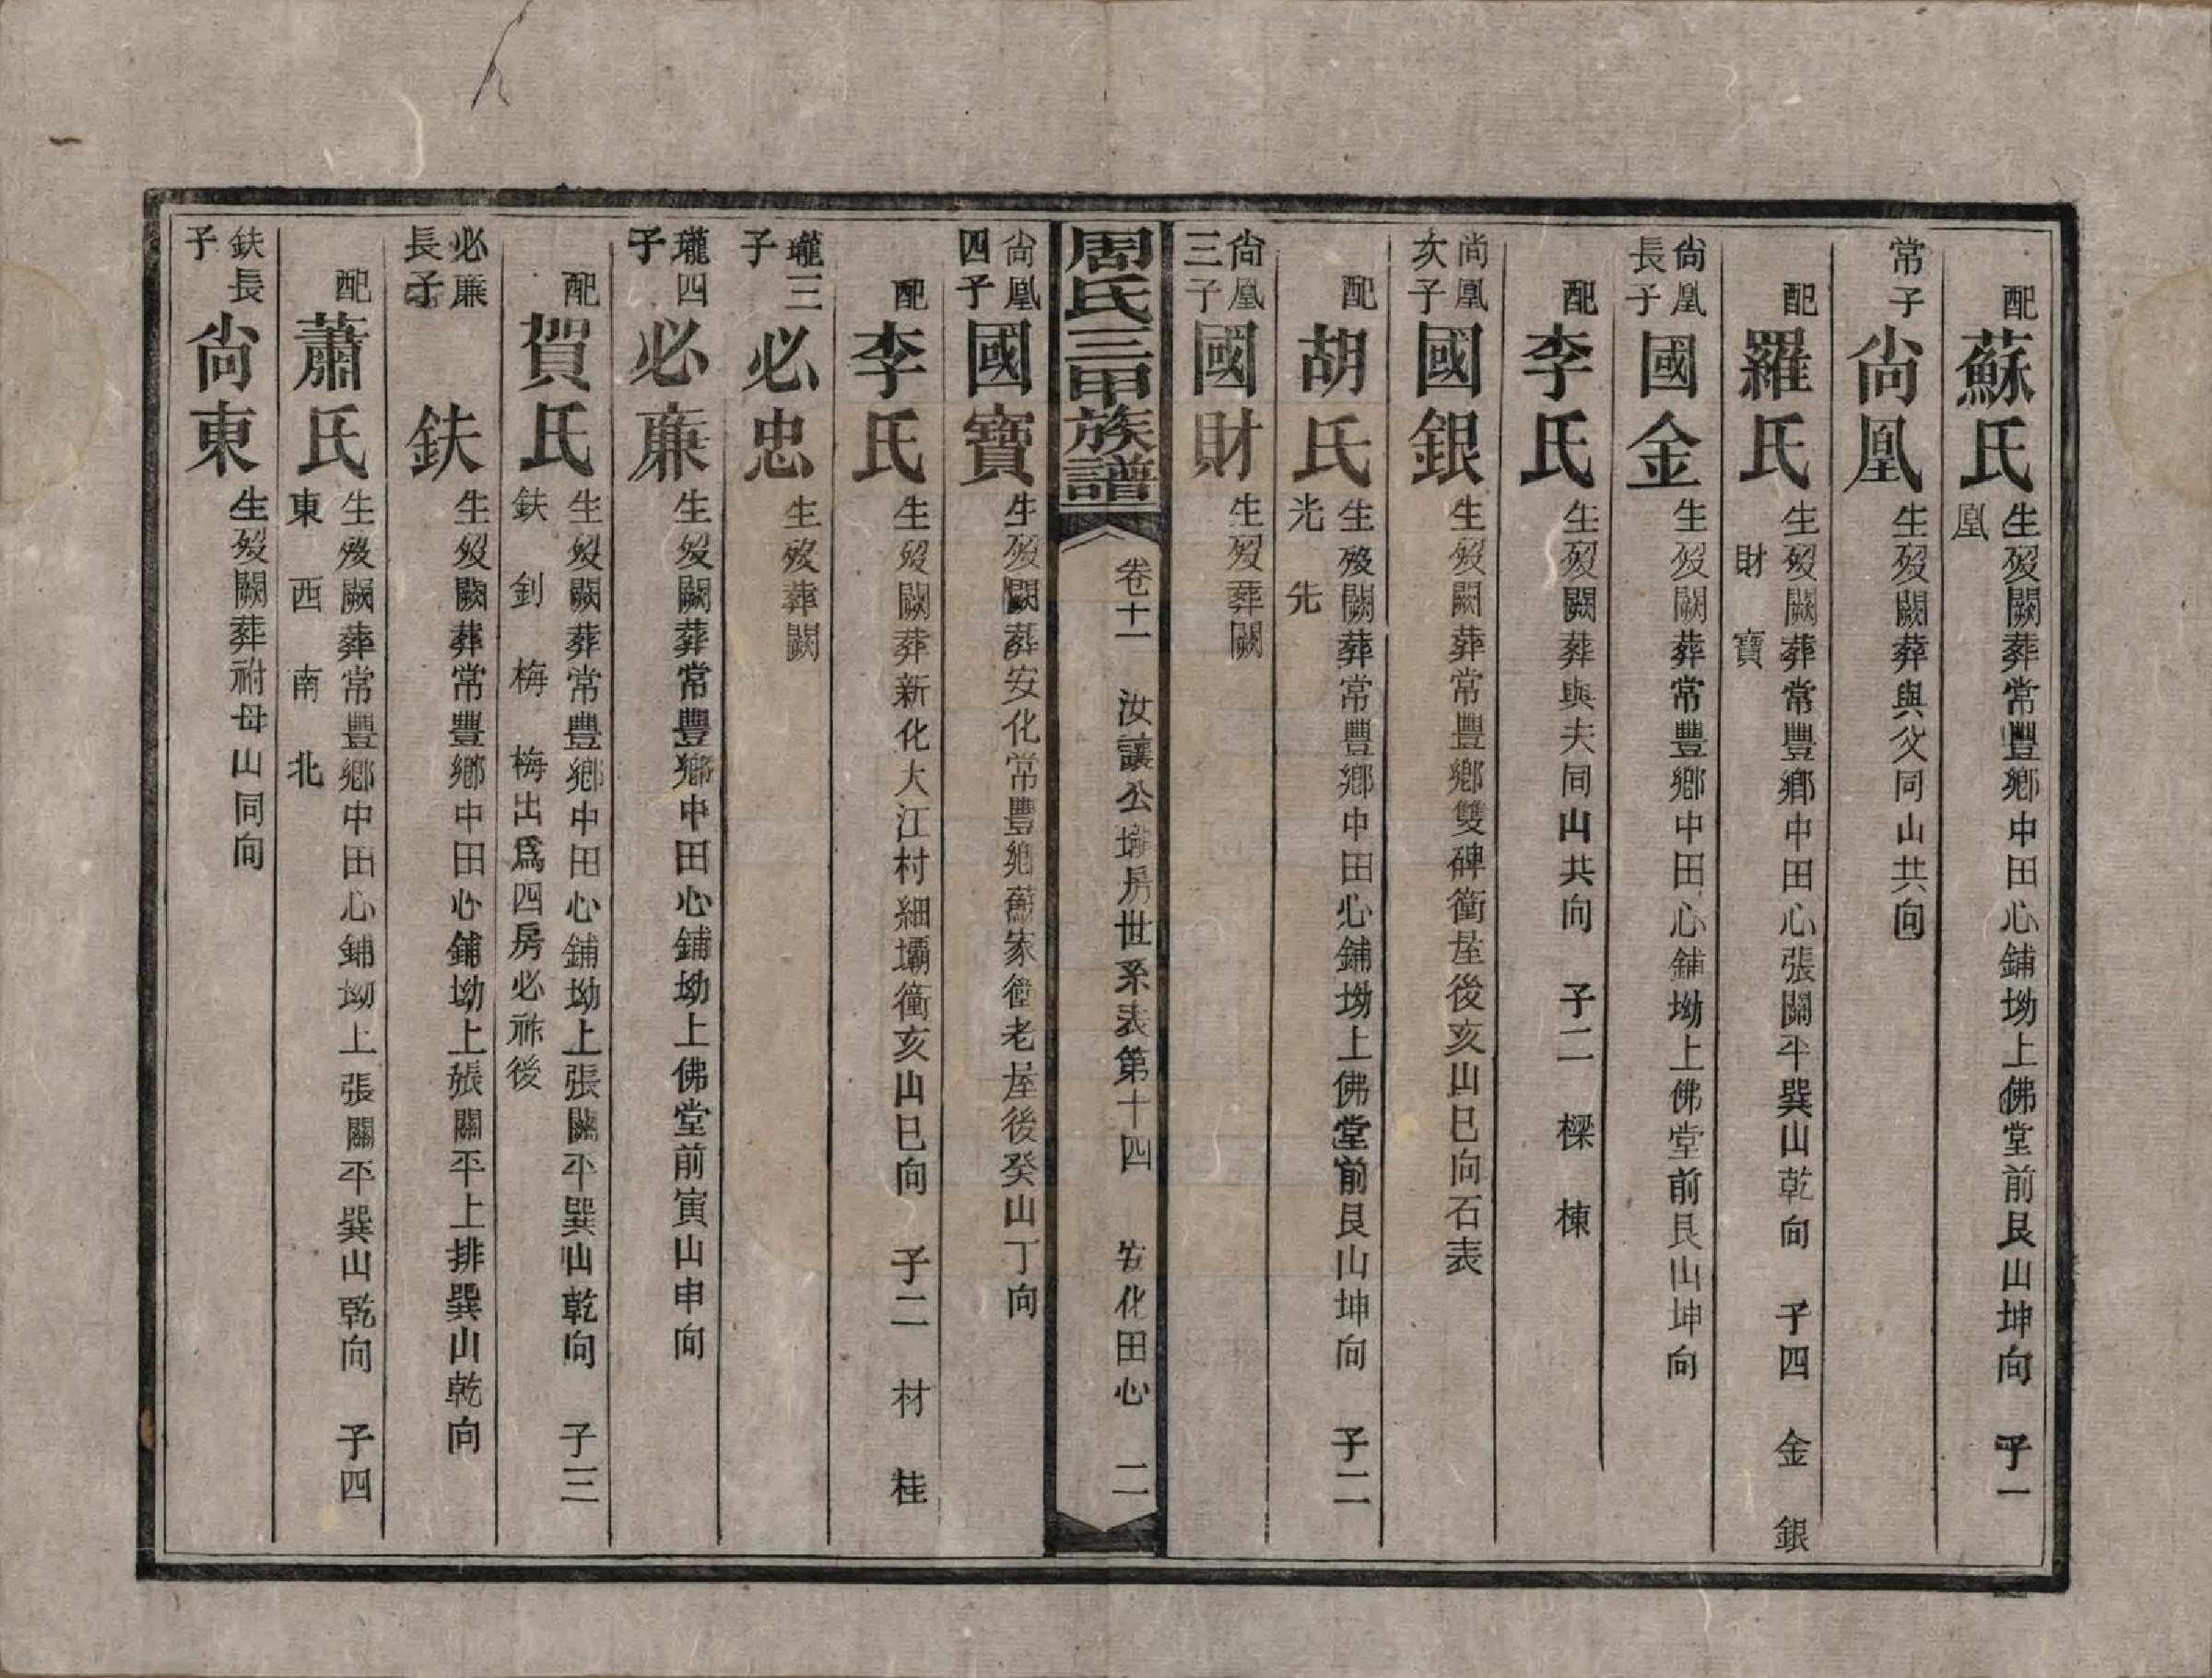 配蘇氏生歿闕葬常豐鄉中田心鋪坳上佛堂前艮山坤向 子一
凰
常子尙凰生歿闕葬與父同山共向
配羅氏生歿闕葬常豐鄉中田心張關平巽山乾向 子四 金 銀
財 寶
尙凰長子國金生歿闕葬常豐鄉中田心鋪坳上佛堂前艮山坤向
配李氏生歿闕葬與夫同山共向 子二 樑 棟
尙凰次子國銀生歿闕葬常豐鄉雙碑衝屋後亥山巳向石表
配胡氏生歿闕葬常豐鄉中田心鋪坳上佛堂前艮山坤向 子二
光 先
尙凰三子國財生歿葬闕
周氏三甲族譜 卷十一 汝讓公瓏房世系表第十四 安化田心 二
尙凰四子國寶生歿闕葬安化常豐鄉蘇家衝老屋後癸山丁向
配李氏生歿闕葬新化大江村細壩衝亥山巳向 子二 材 桂
瓏三子必忠生歿葬闕
瓏四子必廉生歿闕葬常豐鄉中田心鋪坳上佛堂前寅山申向
配賀氏生歿闕葬常豐鄉中田心鋪坳上張關平巽山乾向 子三
鈇 釗 梅 梅出爲四房必祚後
必廉長子鈇生歿闕葬常豐鄉中田心鋪坳上張關平上排巽山乾向
配蕭氏生歿闕葬常豐鄉中田心鋪坳上張關平巽山乾向 子四
東 西 南 北
鈇長子尙東生歿闕葬祔母山同向